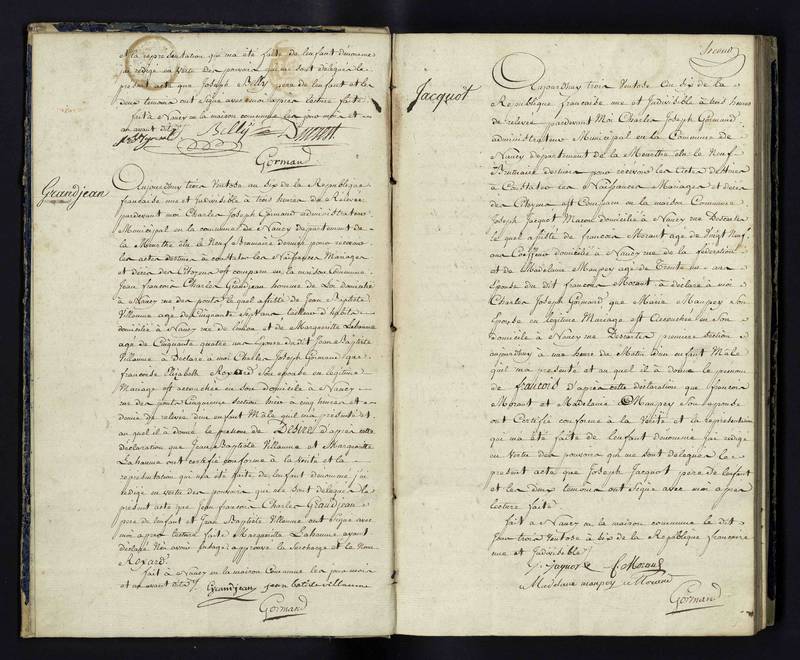 et la représentation qui m'a été faite de l'enfant dénommé
j'ai rédigé en vertu des pouvoirs qui me sont délégués le
présent acte que Joseph Belly pere de l'enfant et les
deux temoins ont signé avec moi après lecture faite
fait à Nancy en la maison commune les jour mois et
an avant dits
Belly
Gormand
Grandjean
Aujourdhuy trois Ventose an six de la Republique
française une et Indivisible à trois heures de Relevée
pardevant moi Charles Joseph Gormand administrateur
Municipal en la commune de Nancy Departement de
la Meurthe élu le Neuf Brumaire dernier pour recevoir
les actes destinés à constater les Naissances Mariages
et décès des Citoyens est comparu en la maison Commune
Jean françois Charles Grandjean homme de Loi domicilié
à Nancy rue des ponts le quel assisté de Jean Baptiste
Villaume agé de Cinquante Sept ans
domicilié à Nancy rue de et de Margueritte Lahaume
agé de Cinquante quatre ans Epouse du dit Jean Baptiste
Villaume à Déclaré à moi Charles Joseph Gormand que
françoise Elizabeth Royard Son épouse en légitime
Mariage est accouchée en son domicile à Nancy
rue des ponts Cinquieme section hier à cinq heures et
demie de relevée d'un enfant Mâle qu'il m'a présenté et
au quel il à donné le prenom de Desiré d'après cette
déclaration que Jean Baptiste Villaume et Margueritte
Lahaume ont certifié conforme à la vérité et la
représentation qui m'a été faite de l'enfant dénommé j'ai
rédigé en vertu des pouvoirs qui me sont délégués le
présent acte que Jean françois Charles Grandjean
pere de l'enfant et Jean Baptiste Villaume ont Signé avec
moi après lecture faite Margueritte Lahaume ayant
déclaré N'en savoir l'usage approuvé la surcharge et le Nom
Royard.
fait à Nancy en la maison Commune les jour mois
et an avant dits
Grandjean jean batiste villaume
Gormand
Second
Jacquot
Aujourdhuy trois Ventose an Six de la
République française une et Indivisible à trois heures
de relevée pardevant Moi Charles Joseph Gormand
administrateur Municipal en la Commune de
Nancy departement de la Meurthe élu le Neuf
Brumaire dernier pour recevoir les Actes destinés
à Constater les Naissances Mariages et décès
des Citoyens est Comparu en la maison Commune
Joseph Jacquot Macon domicilié à Nancy rue Descartes
le quel assisté de francois Morant agé de Vingt Neuf
ans Coiffeur domicilié à Nancy rue de la féderation
et de Madelaine Maupey agé de Trente un ans
Epouse du dit francois Morant à déclaré à moi
Charles Joseph Gormand que Marie Maupey Son
Epouse en legitime Mariage est Accouchée en Son
domicile à Nancy rue Descartes premiere Section
aujourdhuy à une heure du Matin d'un enfant Mâle
quil m'a presenté et au quel il à donné le prenom
de francois d'après cette déclaration que francois
Morant et Madelaine Maupey Son epouse
ont Certifié conforme à la Vérité et la représentation
qui m'a été faite de l'enfant dénommé j'ai rédigé
en vertu des pouvoirs qui me sont délégués le
présent acte que Joseph Jacquot pere de l'enfant
et les deux temoins ont signé avec moi après
lecture faite
fait à Nancy en la maison commune le dit
jour trois Ventose an six de la République francoise
une et Indivisible
J. Jaquot f. Morant
Madelaine maupey
Gormand